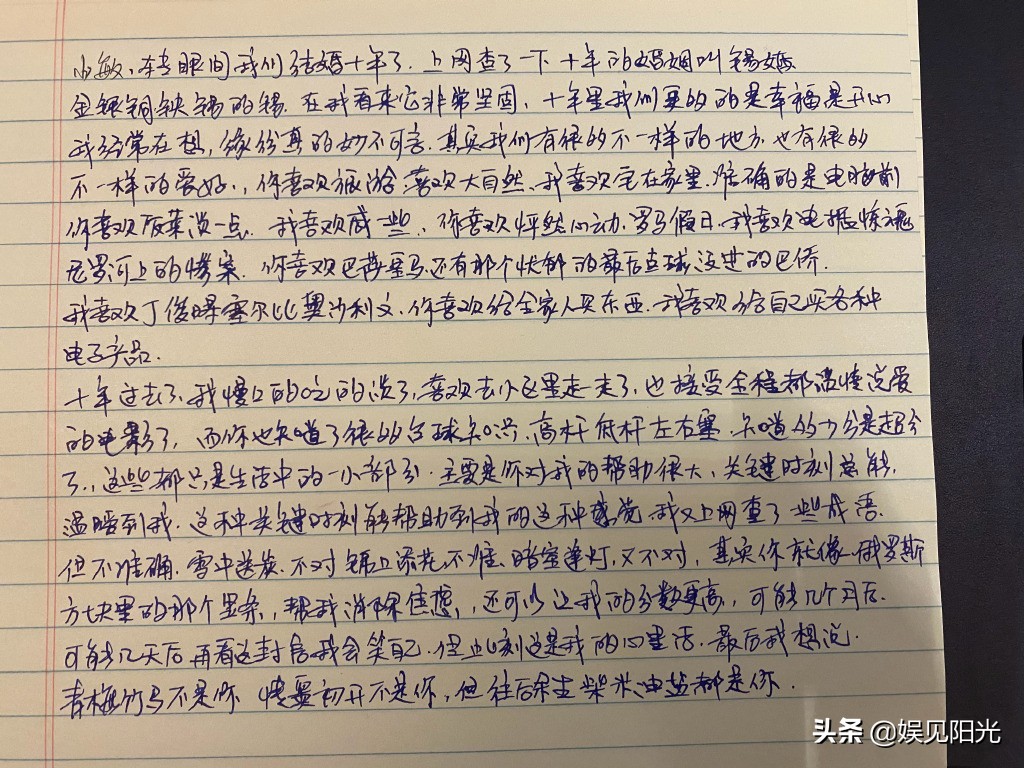 小敏、转眼间我们结婚十年了．上网查了一下十年的婚姻叫锡婚
金银铜铁锡的锡．在我看来它非常坚固，十年里我们要的的是幸福是开心
我经常在想，缘份真的妙不可言．其实我们有很多不一样的地方也有很多
不一样的爱好．，你喜欢旅游喜欢大自然、我喜欢宅在家里．准确的是电脑前
你喜欢饭菜淡一点．我喜欢咸一些．你喜欢怦然心动、罗马假日、我喜欢电锯惊魂
尼罗河上的惨案．你喜欢巴蒂罗马还有那个忧郁的最后点球没进的巴乔．
我喜欢丁俊晖塞尔比奥沙利文．你喜欢给全家人买东西．我喜欢给自己买各种
电子产品．
十年过去了、我慢慢的吃的淡了，喜欢去小区里走一走了，也接受全程都谈情说爱
的电影了，而你也知道了很多台球知识．高杆低杆左右塞．知道多少分是超分
了．，这些都只是生活中的一小部分．主要是你对我的帮助很大、关键时刻总能
温暖到我．这种关键时刻能帮助到我的这种感觉．我又上网查了些成语
但不准确．雪中送炭．不对锦上添花．不准．暗室逢灯，又不对，其实你就像俄罗斯
方块里的那个竖条，帮我消除焦虑，还可以让我的分数更高，可能几个月后．
可能几天后再看这封信我会笑自己．但此刻这是我的心里话．最后我想说．
青梅竹马不是你 情窦初开不是你，但往后余生柴米油盐都是你．
头条 @娱见阳光